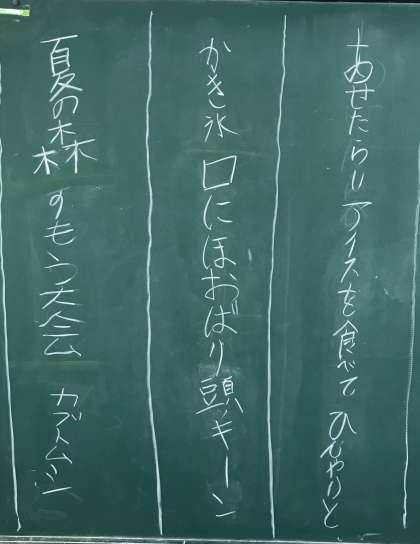 あせたらり アイスを食べて ひんやりと
かき氷 口にほおばり 頭キーン
夏の森 すもう大会 カブトムシ